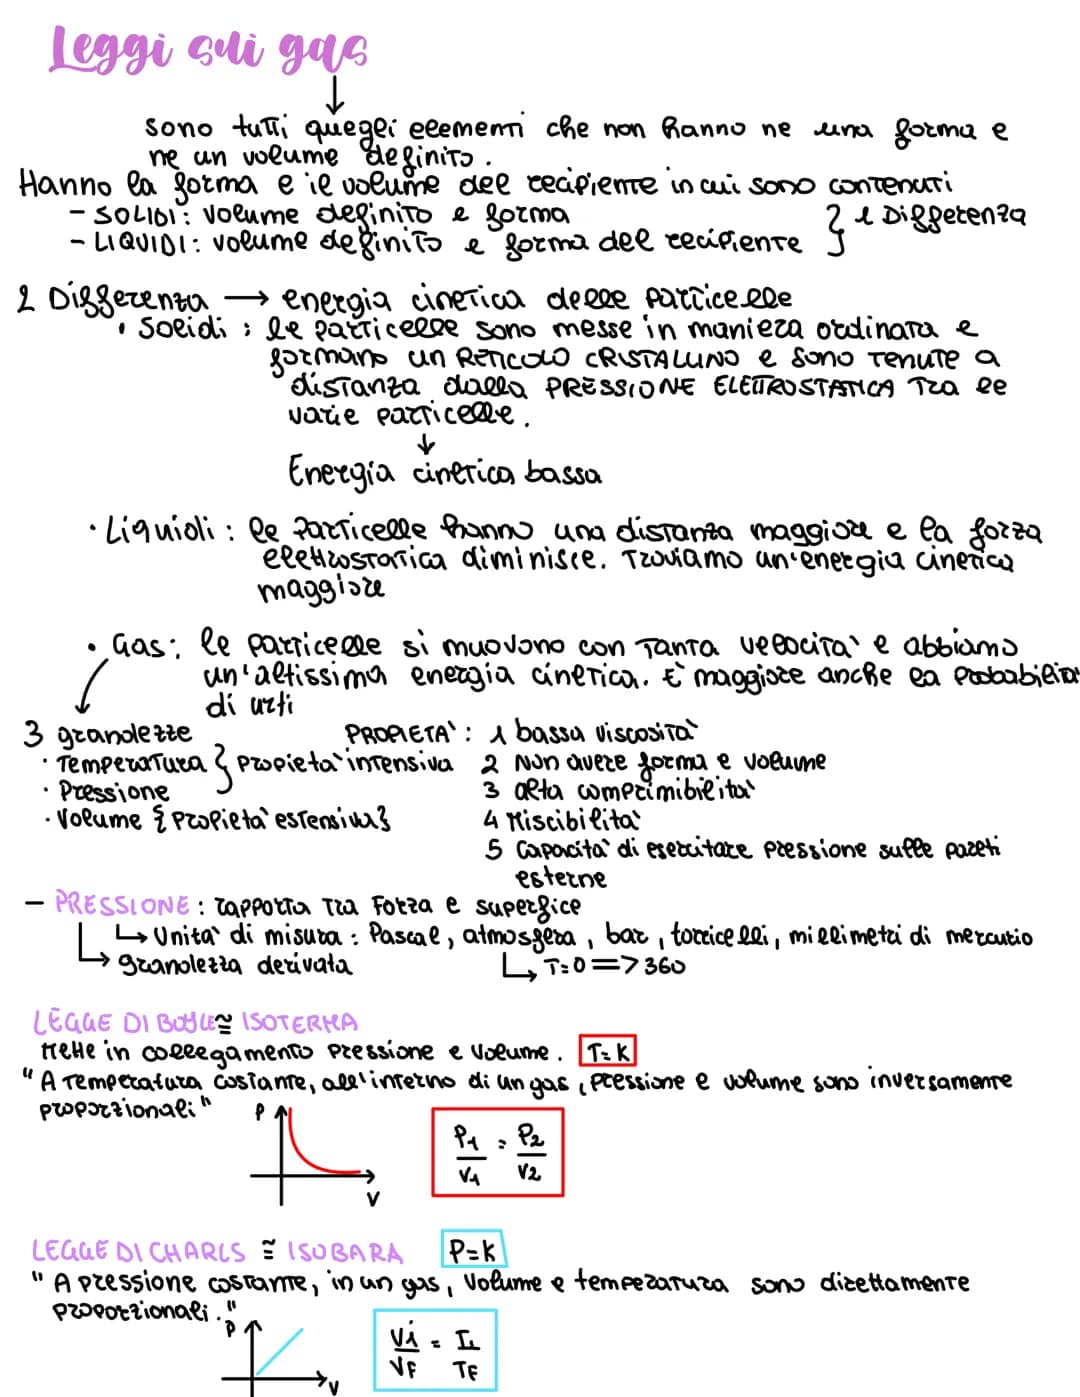 Leggi sui gas
sono tutti quegli elementi che non hanno ne una forma e
ne un volume definito.
Hanno la forma e il volume del recipiente in cui sono contenuti
- SOLIDI: volume definito e forma
- LIQUIDI: volume definito e forma del recipiente } 1 Differenza
2 Differenza → energia cinetica delle particelle
• Solidi: le particelle sono messe in maniera ordinata e
formano un RETICOLO CRISTALLINO e sono tenute a
distanza dalla PRESSIONE ELETTROSTATICA Tra le
varie particelle.
↓
Energia cinetica bassa
• Liquidi: le particelle hanno una distanza maggiore e la forza
elettrostatica diminisce. Troviamo un'energia cinetica
maggiore
• Gas: le particelle si muovono con tanta velocità e abbiamo
un'altissima energia cinetica. E' maggiore anche la probabilità
di urti
3 grandezze
• Temperatura } propietà intensiva
• Pressione
• Volume { propietà estensiva }
PROPIETA': 1 bassa viscosità
2 Non avere forma e volume
3 alta comprimibilità
4 Miscibilità
5 Capacità di esercitare pressione sulle pareti
esterne
- PRESSIONE: rapporto tra Forza e superfice
↳ Unità di misura: Pascal, atmosfera, bar, torricelli, millimetri di mercurio
↳ grandezza derivata ↳ T=0 => 360
LEGGE DI BOYLE ≅ ISOTERMA
Mette in collegamento Pressione e Volume. T=K
"A Temperatura Costante, all'interno di un gas, pressione e volume sono inversamente
proporzionali"
P
V
P1/V1 = P2/V2
LEGGE DI CHARLS ≅ ISOBARA P=K
"A pressione costante, in un gas, Volume e temperatura sono direttamente
proporzionali."
P
V
Vi/VF = Ti/TF